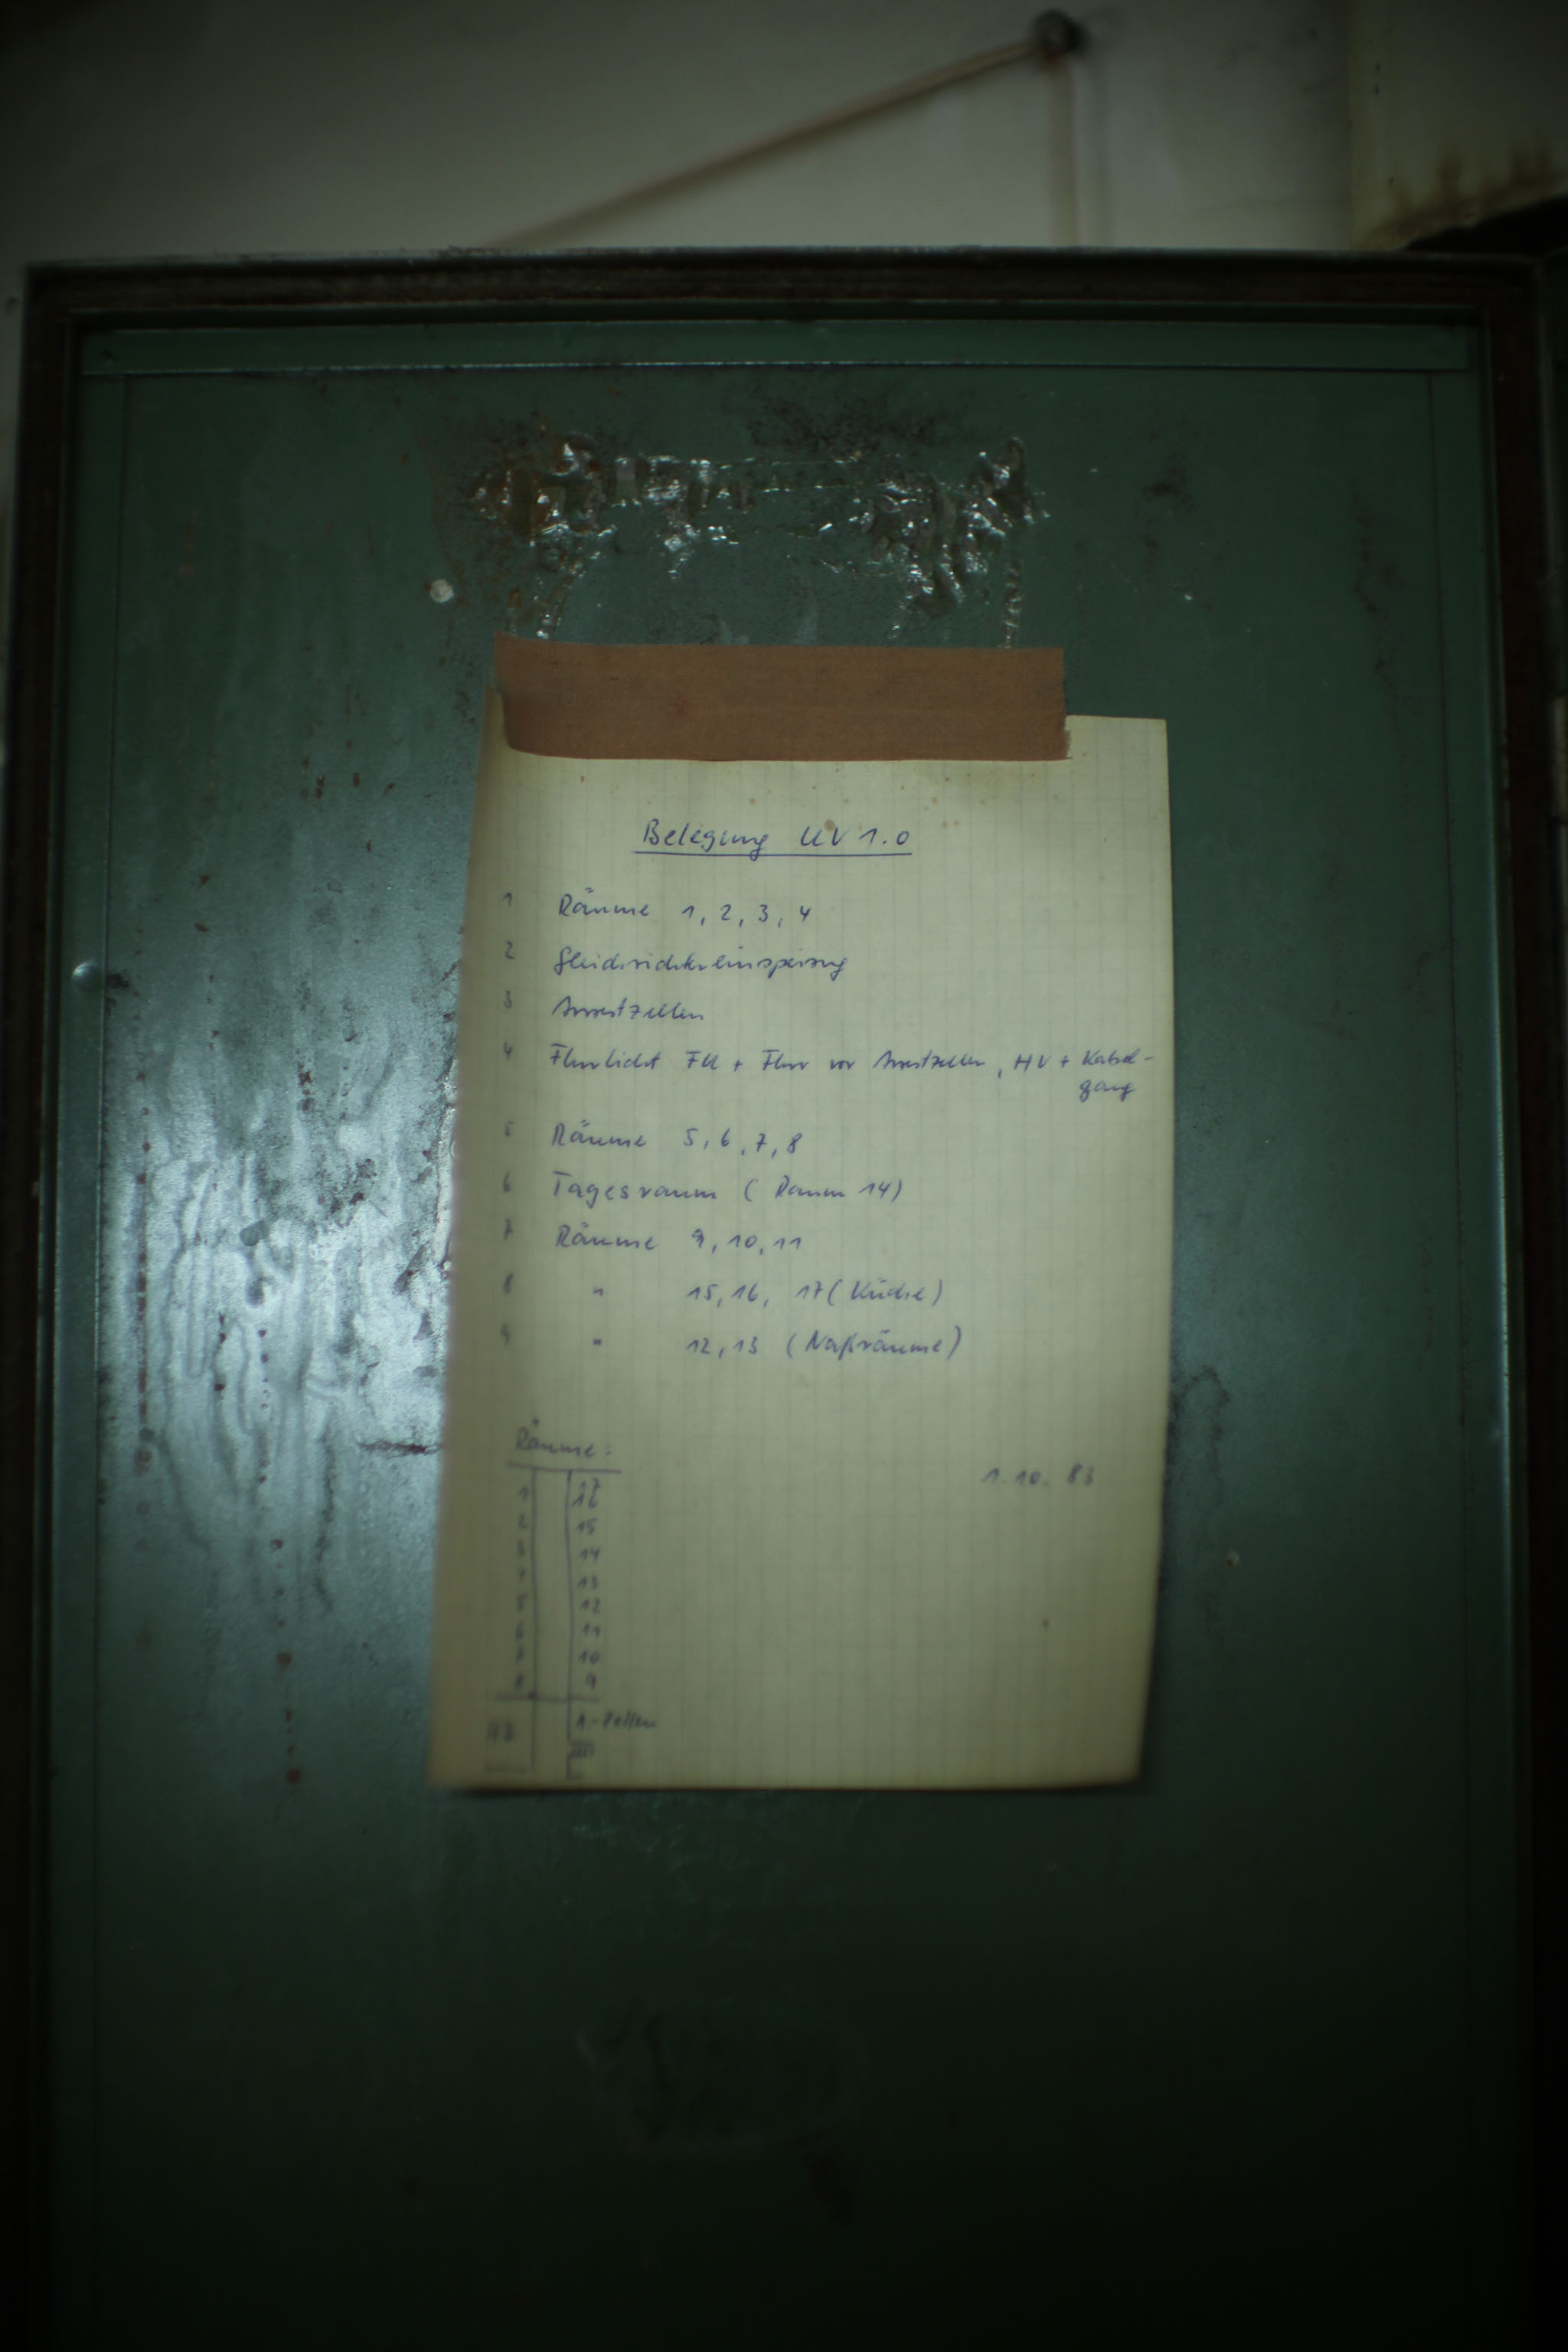 Belegung UV 1.0
1 Räume 1, 2, 3, 4
2 Gleichrichtereinspeisung
3 Arrestzellen
4 Flurlicht FU + Flur vor Arrestzellen, HV + Kabel-
gang
5 Räume 5, 6, 7, 8
6 Tagesraum (Raum 14)
7 Räume 9, 10, 11
8 " 15, 16, 17 (Küche)
9 " 12, 13 (Naßräume)
Räume:
1.10.83
17
1 16
2 15
3 14
4 13
5 12
6 11
7 10
8 9
A.-Zellen